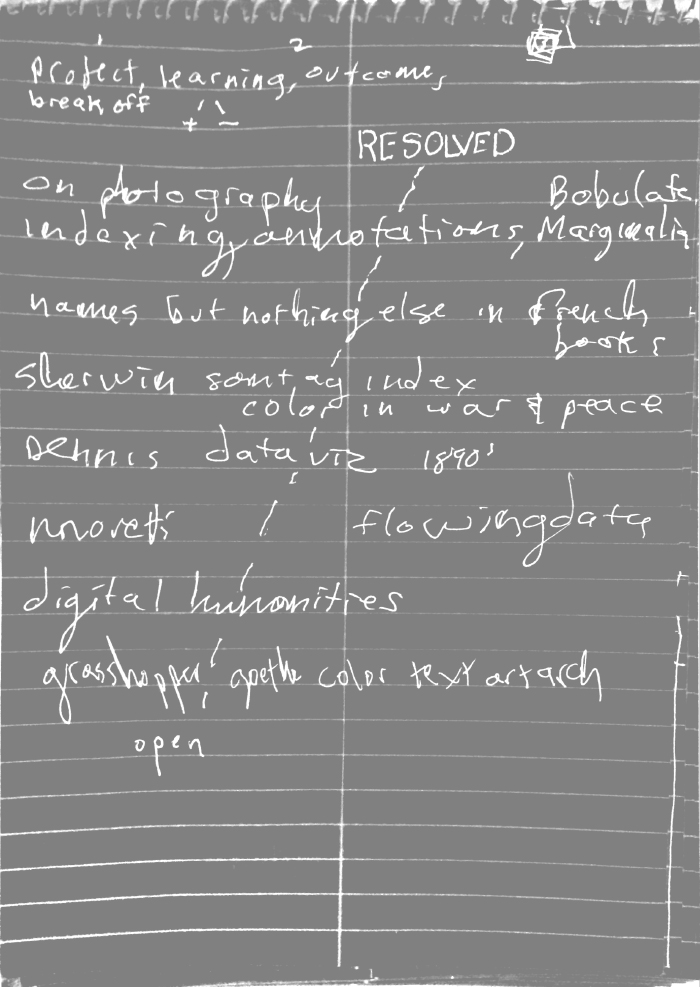 1 2
project, learning, outcome,
break off + -
RESOLVED
on photography Bobulate,
indexing, annotations, Marginalia
names but nothing else in french
books
sherwin sontag index
color in war & peace
Dennis data viz 1890's
flowingdata
digital humanities
grasshopper color text art arch
open